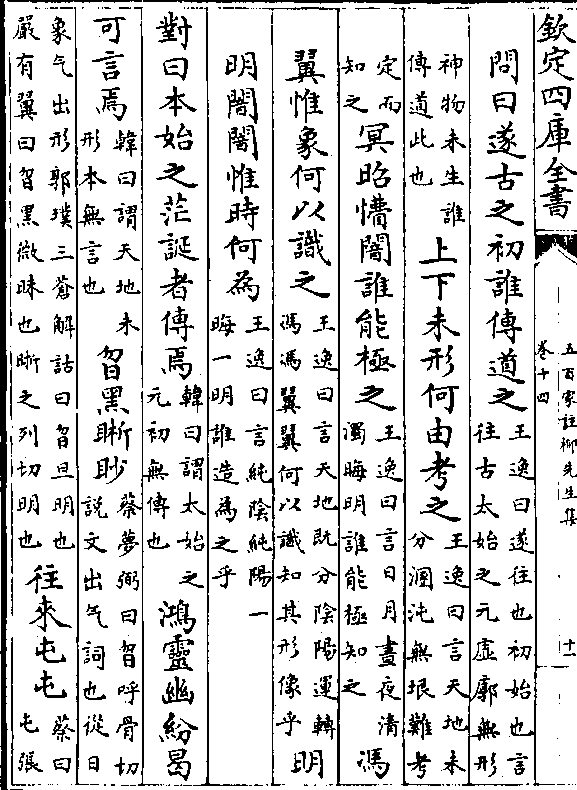 欽定四庫全書
五百家註栁先生集
卷十四
十
問曰遂古之初誰傳道之王逸曰遂往也初始也言往古太始之元虚廓無形
神物未生誰傳道此也上下未形何由考之王逸曰言天地未分溷沌無垠難考
定而知之冥昭懵闇誰能極之王逸曰言日月晝夜清濁晦明誰能極知之馮
翼惟象何以識之王逸曰言天地既分陰陽運轉馮馮翼翼何以識知其形像乎明
明闇闇惟時何為王逸曰言純陰純陽一晦一明誰造為之乎
對曰本始之茫誕者傳焉韓曰謂太始之元初無傳也鴻靈幽紛曷
可言焉韓曰謂天地未形本無言也曶黑晰眇蔡夢弼曰曶呼骨切說文出气詞也從日
象气出形郭璞三蒼解詁曰曶旦明也嚴有翼曰曶黑微昧也晰之列切明也往來屯屯蔡曰屯張